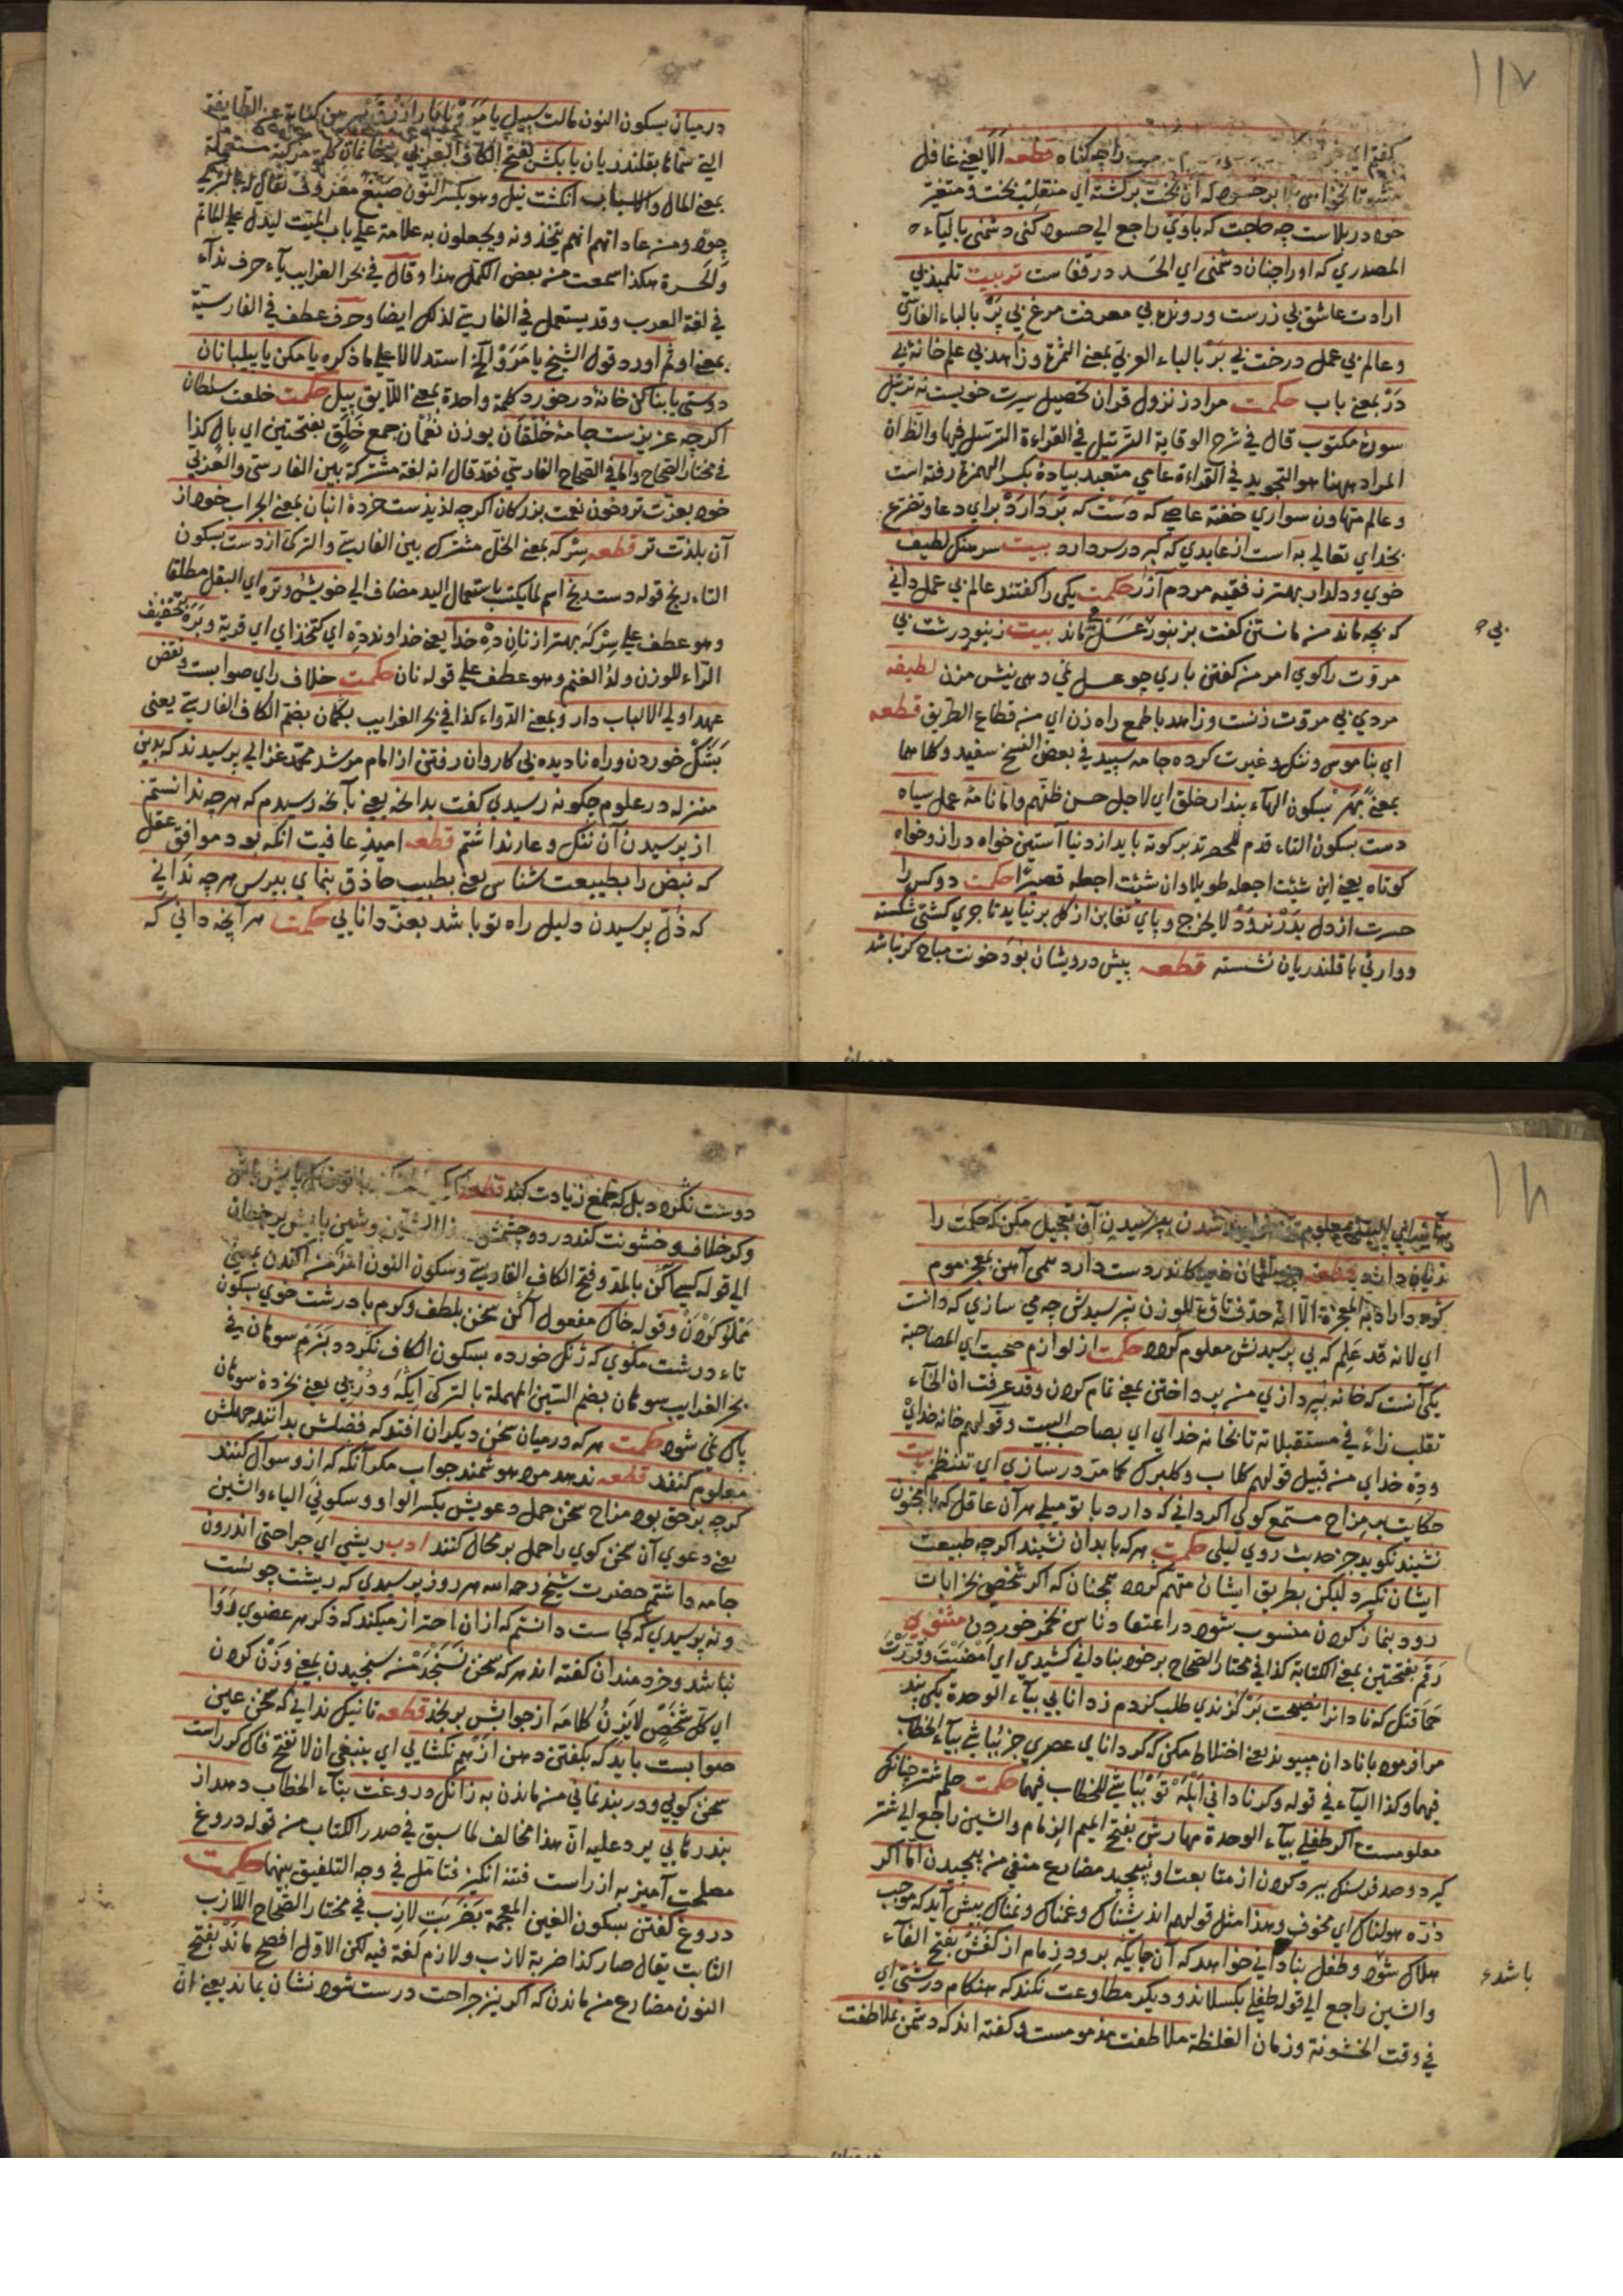 ١١٧
كفتم اي راچه كناه قطعه الا يعني غافل
مشو تا نخواهي بلا بر حسود كه آن بخت بركشته اي منقلب بخت ومتغير
خود در بلاست چه حاجت كه باوي راجع الي حسود كني دشمني بالياء
المصدري كه او را چنان دشمني اي الحسد در قفاست تربيت تلميذ بي
ارادت عاشق بي زرست ورونده بي معرفت مرغ بي پر بالباء الفارسي
وعالم بي عمل درخت بي بر بالباء العربي بمعني الثمرة وزاهد بي علم خانه بي
در بمعني باب حكمت مراد از نزول قران تحصيل سيرت خوبست نه ترتيل
سورة مكتوب قال في شرح الوقاية الترتيل في القراءة الترسل فيها والظ ان
المراد ههنا هو التجويد في القراءة عامي متعبد پياده بكسر الهمزة رفته است
وعالم متهاون سواري خفته عاصي كه دست كه بردارد براي دعا وتضرع
بخداي تعالي به است از عابدي كه كبر در سر دارد بيت سرهنك لطيف
خوي ودلدار بهتر ز فقيه مردم آزار حكمت يكي را كفتند عالم بي عمل داني
كه بچه ماند من مانستن كفت بزنبور عسل ماند بيت زنبور درشت بي
بي
مروت را كوي امر من كفتن باري چو عسل نمي دهي نيش مزن لطيفه
مردي بي مروت زنست وزاهد با طمع راه زن اي من قطاع الطريق قطعه
اي بناموس وننك وغيرت كرده جامه سپيد في بعض النسخ سفيد وكلاهما
بمعني بهر بسكون الهاء پندار خلق اي لاجل حسن ظنهم وانا نامه عمل سياه
دست بسكون التاء قدم للحصر تدبر كوته بايد از دنيا آستين خواه دراز وخواه
كوتاه يعني اين شئت اجعله طويلا وان شئت اجعله قصيرا حكمت دو كس را
حسرت از دل بدر نرود لا يخرج وپاي تغابن از كل بر نيايد تاجري كشتي شكسته
ووارثي با قلندريان نشسته قطعه پيش درويشان بود خونت مباح كر نباشد
درميان
درميان بسكون النون مالت سبيل يا مرو با يار ازرق پيرهن كناية عن الطايفة
التي سماها بقلندريان يا بكش بفتح الكاف العربي بر خانمان كلمة مركبة مستعملة
بمعني المال والاسباب انكشت نيل وهو بكسر النون صبغ معروف يقال له بالتركي
چوه ومن عاداتهم انهم يتخذونه ويجعلون به علامة علي باب الميت ليدل علي الماتم
والحسرة هكذا سمعت من بعض الكمل هذا وقال في بحر الغرايب ياء حرف نداء
في لغة العرب وقد يستعمل في الفارسية لذلك ايضا وحرف عطف في الفارسية
بمعني او ثم اورد قول الشيخ يا مرو الخ استدلالا علي ما ذكره يا مكن با پيلبانان
دوستي يا بنا كن خانه در خورد كلمة واحدة بمعني اللايق پيل حكمت خلعت سلطان
اكرچه عزيزست جامه خلقان بوزن نعمان جمع خلق بفتحتين اي بال كذا
في مختار الصحاح واما في الصحاح الفارسي فقد قال انه لغة مشتركة بين الفارسي والعربي
خود بعزت تر وخوان نعمت بزركان اكرچه لذيذست خردة انبان بمعني الجراب خود از
آن بلذت تر قطعه سركه بمعني الخل مشترك بين الفارسية والتركي از دست بسكون
التاء رنج قوله دست رنج اسم لما يكتب باستعمال اليد مضاف الي خويش وتره اي البقل مطلقا
وهو عطف علي سركه بهتر از نان ده خدا يعني خداوند ده اي كتخداي اي قرية وبره بتخفيف
الراء للوزن ولد الغنم وهو عطف علي قوله نان حكمت خلاف راي صوابست ونقض
عهد اولي الالباب دارو بمعني الدواء كذا في بحر الغرايب بكمان بضم الكاف الفارسية يعني
بشك خوردن وراه ناديده بي كاروان رفتن از امام مرشد محمد غزالي پرسيدند كه بدين
منزله در علوم چكونه رسيدي كفت بدانچه يعني بآنچه رسيدم كه هرچه ندانستم
از پرسيدن آن ننك وعار نداشتم قطعه اميد عافيت انكه بود موافق عقل
كه نبض را بطبيعت شناس يعني بطبيب حاذق بنماي بپرس هرچه نداني
كه ذل پرسيدن دليل راه تو باشد بعز دانايي حكمت هر آنچه داني كه
١١٨
هر آينه معلوم تو خواهد شدن بپرسيدن آن تعجيل مكن كه حكمت را
زيان دارد قطعه چو لقمان ديد كاندر دست داود همي آهن بمعجز موم
شود اراد به المعجزة الا انه حذف تاؤه للوزن نپرسيدش چه مي سازي كه دانست
اي لانه قد علم كه بي پرسيدنش معلوم كردد حكمت از لوازم صحبت اي المصاحبة
يكي آنست كه خانه بپردازي من پرداختن بمعني تمام كردن وقد عرفت ان الخاء
تقلب زاء في مستقبلاته تا بخانه خداي اي بصاحب البيت وقولهم خانه خداي
وده خداي من قبيل قولهم كلاب وكلبرك كما مر در سازي اي تنتظم بيت
حكايت بر مزاج مستمع كوي اكر داني كه دارد با تو ميلي هر آن عاقل كه با مجنون
نشيند نكويد جز حديث روي ليلي حكمت هر كه با بدان نشيند اكرچه طبيعت
ايشان نكيرد ليكن بطريق ايشان متهم كردد همچنان كه اكر شخصي بخرابات
رود بنماز كردن منسوب شود در اعتقاد ناس بخمر خوردن مثنوي
رقم بفتحتين بمعني الكتابة كذا في مختار الصحاح بر خود بناداني كشيدي اي امضيت وقررت
حماقتك كه نادان را نصيحت بركزيدي طلب كردم ز دانايي بياء الوحدة يكي پند
مرا فرمود با نادان مپيوند يعني اختلاط مكن كه كر داناي عصري خر بباشي بياء الخطاب
فيهما وكذا الياء في قوله وكر ناداني ابله تر بباشي للخطاب فيهما حكمت حلم شتر چنانك
معلومست اكر طفلي بياء الوحدة مهارش بفتح الميم الزمام والشين راجع الي شتر
كيرد وصد فرسنك ببرد كردن از متابعت او نپيچد مضارع منفي من پيچيدن اما اكر
دره هولناك اي مخوف وهذا مثل قولهم انديشناك وغمناك ونمناك پيش آيد كه موجب
هلاك شود وطفل بناداني خواهد كه آن جايكه برود زمام از كفش بفتح الفاء
باشد
والشين راجع الي قوله طفلي بكسلاند وديكر مطاوعت نكند كه هنكام درشتي اي
في وقت الخشونة وزمان الغلظة ملاطفت مذمومست وكفته اند كه دشمن بملاطفت
دوست نكردد بلكه طمع زيادت كند قطعه خاك پايش باش
وكر خلاف وخشونت كند در دو چشمش
الي قوله كسي آكن بالمد وفتح الكاف الفارسية وسكون النون امر من آكندن بمعني
مملو كردن وقوله خاك مفعول آكن سخن بلطف وكرم با درشت خوي بسكون
تاء درشت مكوي كه زنك خورده بسكون الكاف نكردد بنرم سوهان في
بحر الغرايب سوهان بضم السين المهملة بالتركي ايكه ودربي يعني بخردة سوهان
پاك نمي شود حكمت هر كه درميان سخن ديكران افتد كه فضلش بدانند جهلش
معلوم كنند قطعه ندهد مرد هوشمند جواب مكر آنكه كه ازو سوآل كنند
كرچه بر حق بود مزاح سخن حمل دعويش بكسر الواو وسكوني الياء والشين
يعني دعوي آن سخن كوي را حمل بر محال كنند ادب ريشي اي جراحتي اندرون
جامه داشتم حضرت شيخ رحمه الله هر روز پرسيدي كه ريشت چونست
ونه پرسيدي كه كجاست دانستم كه از ان احتراز ميكند كه ذكر هر عضوي روا
نباشد وخردمندان كفته اند هر كه سخن نسنجد من سنجيدن بمعني وزن كردن
اي كل شخص لا يزن كلامه از جوابش برنجد قطعه تا نيك نداني كه سخن عين
صوابست بايد كه بكفتن دهن از هم نكشايي اي ينبغي ان لا تفتح فاك كر راست
سخن كويي ودر بند بماني من ماندن به زانك دروغت بتاء الخطاب دهد از
بند رهايي يرد عليه ان هذا مخالف لما سبق في صدر الكتاب من قوله دروغ
مصلحت آميز به از راست فتنه انكيز فتامل في وجه التلفيق بينهما حكمت
دروغ كفتن بسكون الغين المعجمة بضربت لازب في مختار الصحاح اللازب
الثابت يقال صار كذا ضربة لازب ولازم لغة فيه لكن الاول افصح ماند بفتح
النون مضارع من ماندن كه اكر نيز جراحت درست شود نشان بماند يعني ان